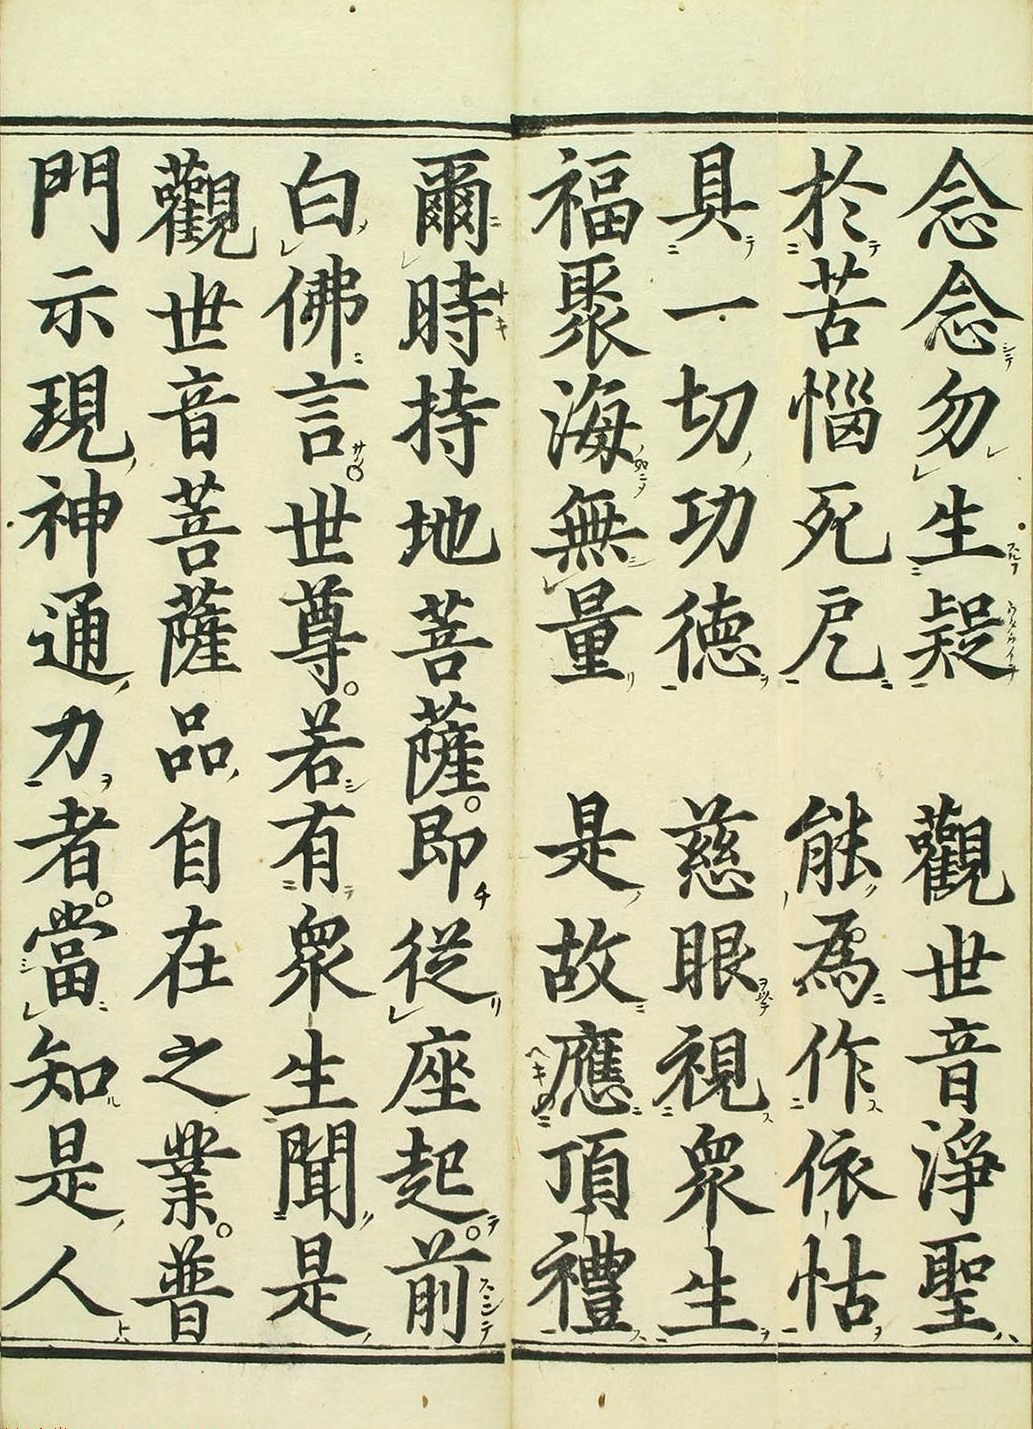 念念勿生疑　觀世音淨聖
於苦惱死戹　能為作依怙
具一切功德　慈眼視眾生
福聚海無量　是故應頂禮
爾時持地菩薩。即從座起。前
白佛言。世尊。若有眾生聞是
觀世音菩薩品自在之業。普
門示現神通力者。當知是人